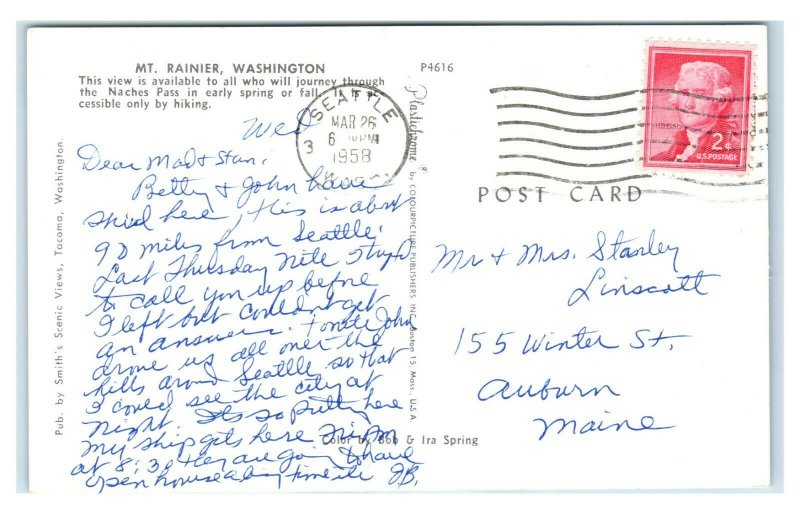 MT. RAINIER, WASHINGTON
This view is available to all who will journey through
the Naches Pass in early spring or fall. It is ac-
cessible only by hiking.
P4616
SEATTLE
MAR 26
6 PM
1958
3
WASH.
2¢
U.S. POSTAGE
POST CARD
Wed
Dear Mad & Stan,
Betty & John have
skied here, this is about
90 miles from Seattle.
Last Thursday nite
to call you up before
I left but couldn't get
an answer. Tonite John
drove us all over the
hills around Seattle so that
I could see the city at
night. Its so pretty here
My ship gets here
at 8:30 they are going to have
open house a big time
Mr & Mrs. Stanley
Linscott
155 Winter St,
Auburn
Maine
Plastichrome ® by COLOURPICTURE PUBLISHERS, INC., Boston 15, Mass., U.S.A
Color by Bob & Ira Spring
Pub. by Smith's Scenic Views, Tacoma, Washington.